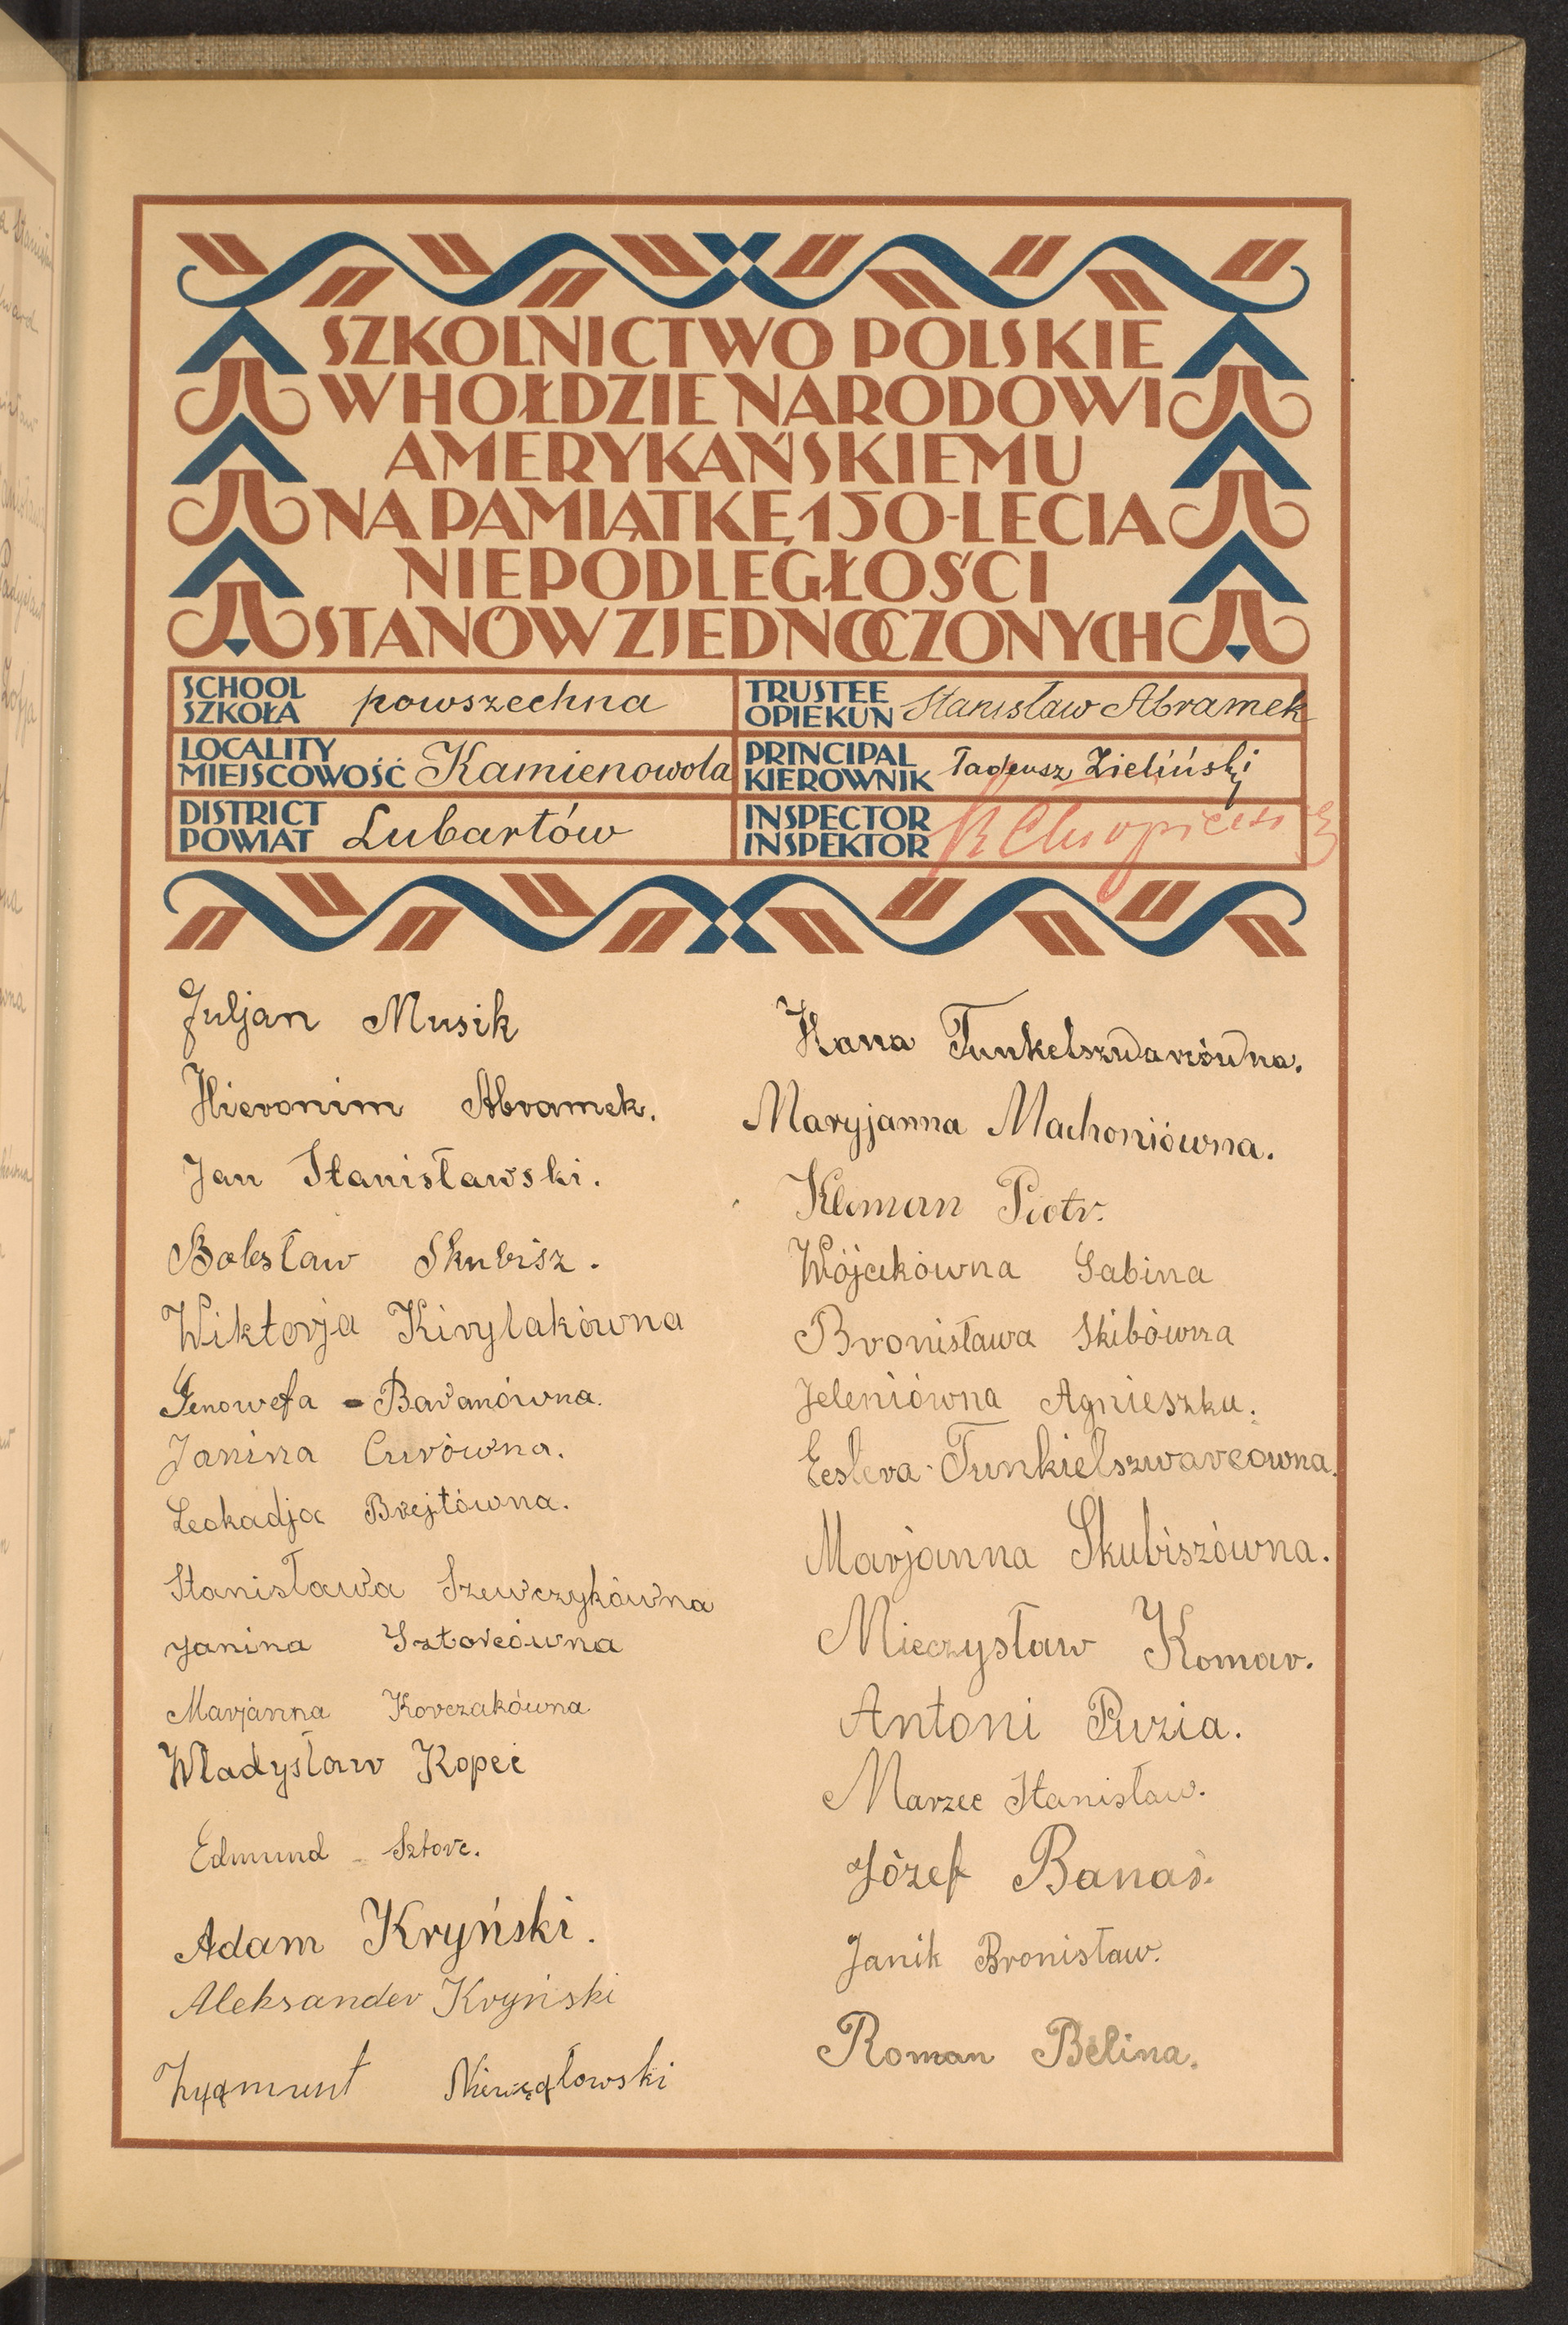 SZKOLNICTWO POLSKIE
W HOŁDZIE NARODOWI
AMERYKAŃSKIEMU
NA PAMIĄTKĘ 150-LECIA
NIEPODLEGŁOŚCI
STANÓW ZJEDNOCZONYCH
SCHOOL
SZKOŁA
powszechna
TRUSTEE
OPIEKUN
Stanisław Abramek
LOCALITY
MIEJSCOWOŚĆ
Kamienowola
PRINCIPAL
KIEROWNIK
Tadeusz Zieliński
DISTRICT
POWIAT
Lubartów
INSPECTOR
INSPEKTOR
Juljan Musik
Hieronim Abramek.
Jan Stanisławski.
Bolesław Skubisz.
Wiktorja Kirylakówna
Genowefa - Baranówna.
Janina Curówna.
Leokadja Brejtówna.
Stanisława Szewczykówna
Janina Sztorcówna
Marjanna Korczakówna
Władysław Kopeć
Edmund Sztorc.
Adam Kryński.
Aleksander Kryński
Zygmunt Niewęgłowski
Hana Funkelszwarcówna.
Maryjanna Machoniówna.
Kliman Piotr.
Wójcikówna Sabina
Bronisława Skibówna
Jeleniówna Agnieszka.
Funkielszwarcówna.
Marjanna Skubiszówna.
Mieczysław Komar.
Antoni Puzia.
Marzec Stanisław.
Józef Banaś.
Janik Bronisław.
Roman Belina.